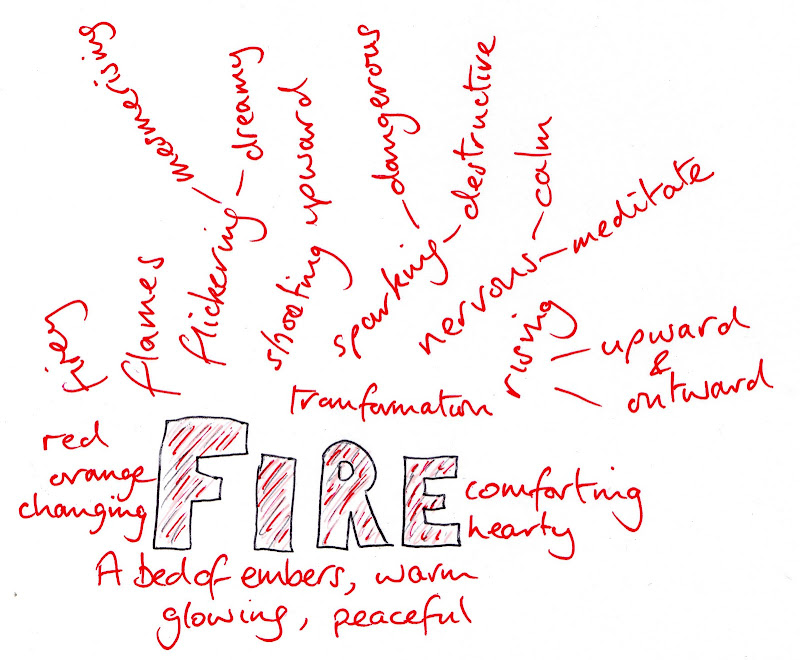 mesmerising
dreamy
dangerous
destructive
calm
meditate
firey
flames
flickering
shooting upward
sparking
nervous
rising
upward
&
outward
tranformation
red
orange
changing
FIRE
comforting
hearty
A bed of embers, warm
glowing, peaceful